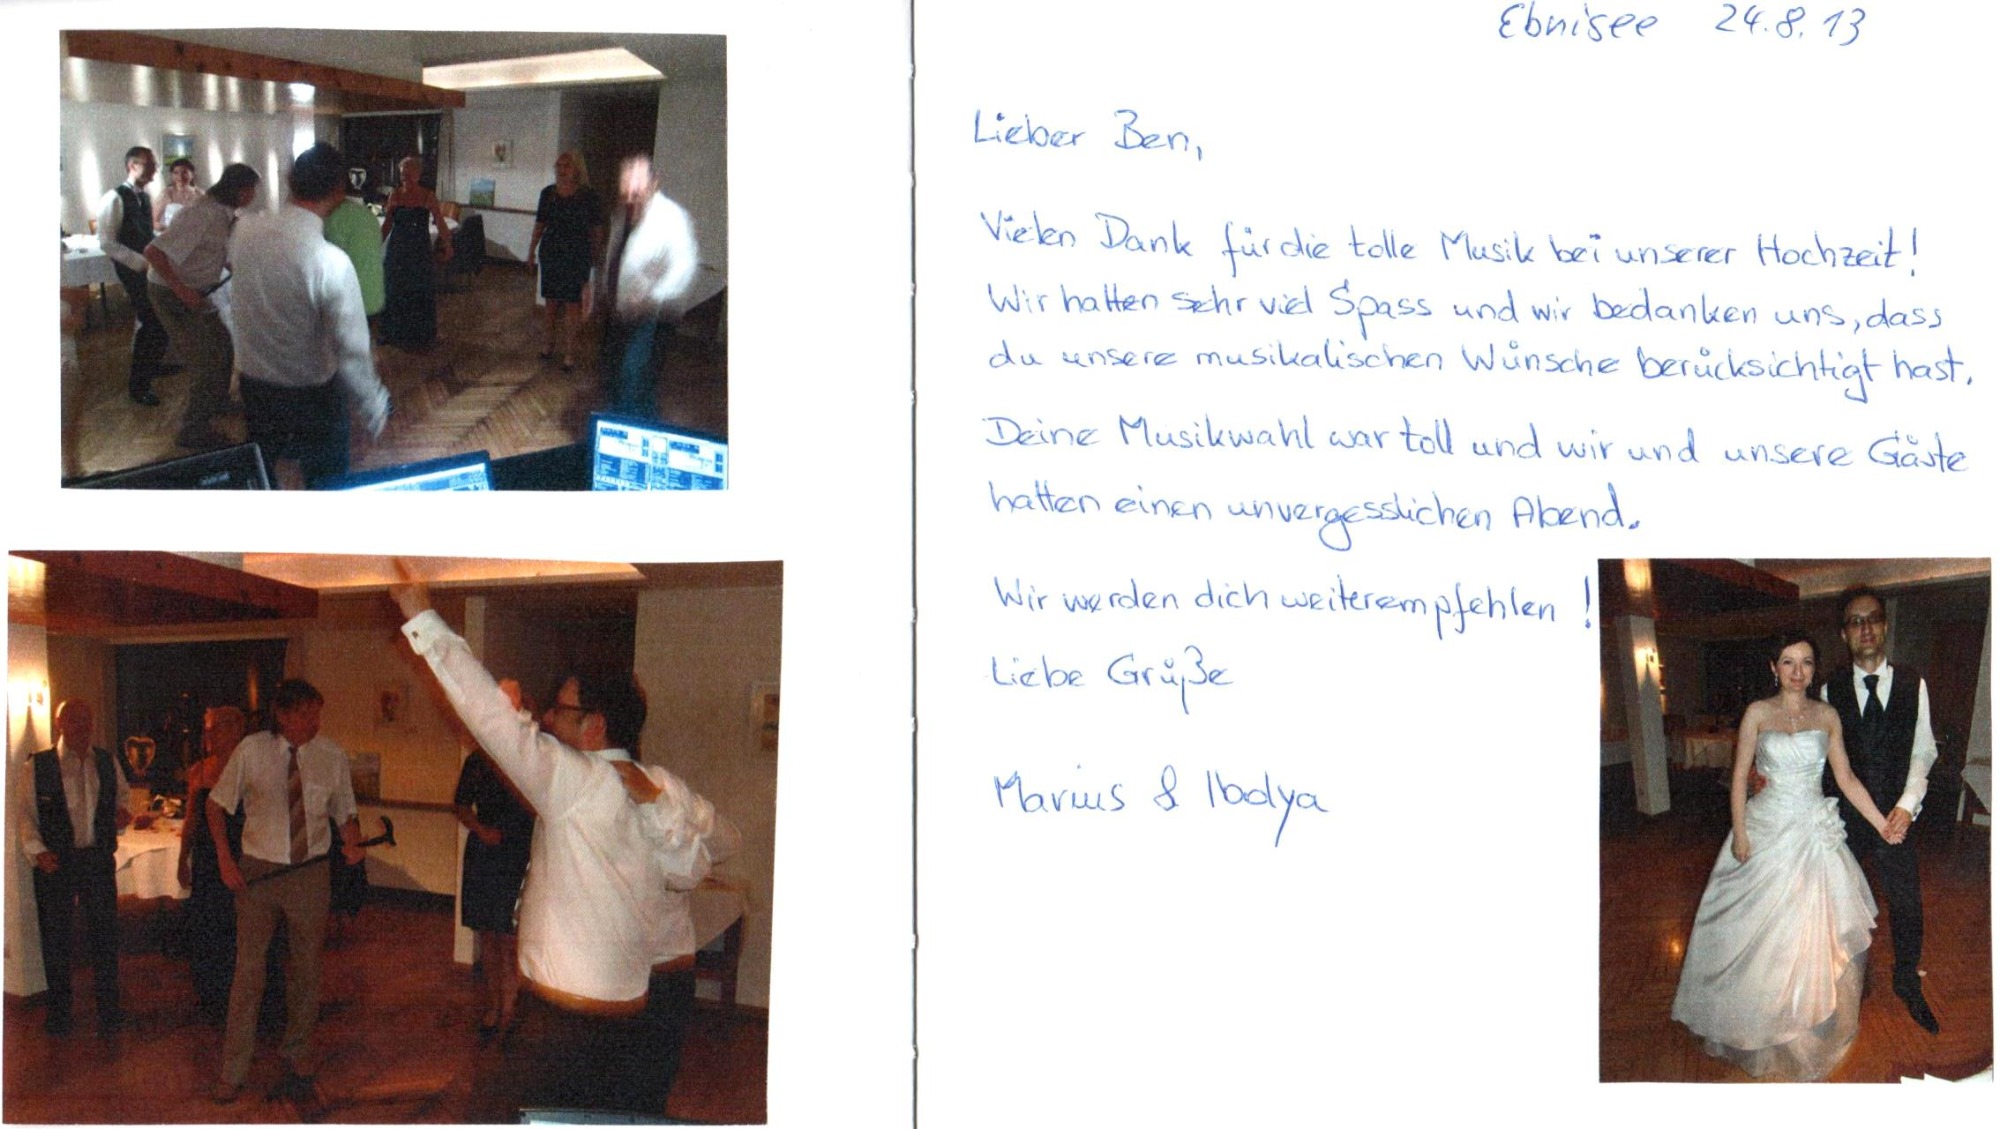 Ebnisee 24.8.13
Lieber Ben,
Vielen Dank für die tolle Musik bei unserer Hochzeit!
Wir hatten sehr viel Spass und wir bedanken uns, dass
du unsere musikalischen Wünsche berücksichtigt hast.
Deine Musikwahl war toll und wir und unsere Gäste
hatten einen unvergesslichen Abend.
Wir werden dich weiterempfehlen!
Liebe Grüße
Marius & Nadya